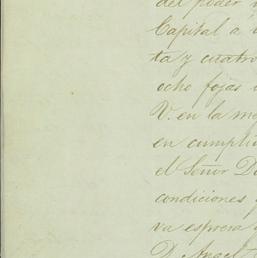 del poder
Capital a
ta y cuatro
ocho fojas
V. en la
en cumpli
el Señor D
condiciones
va espresa
D. Angel